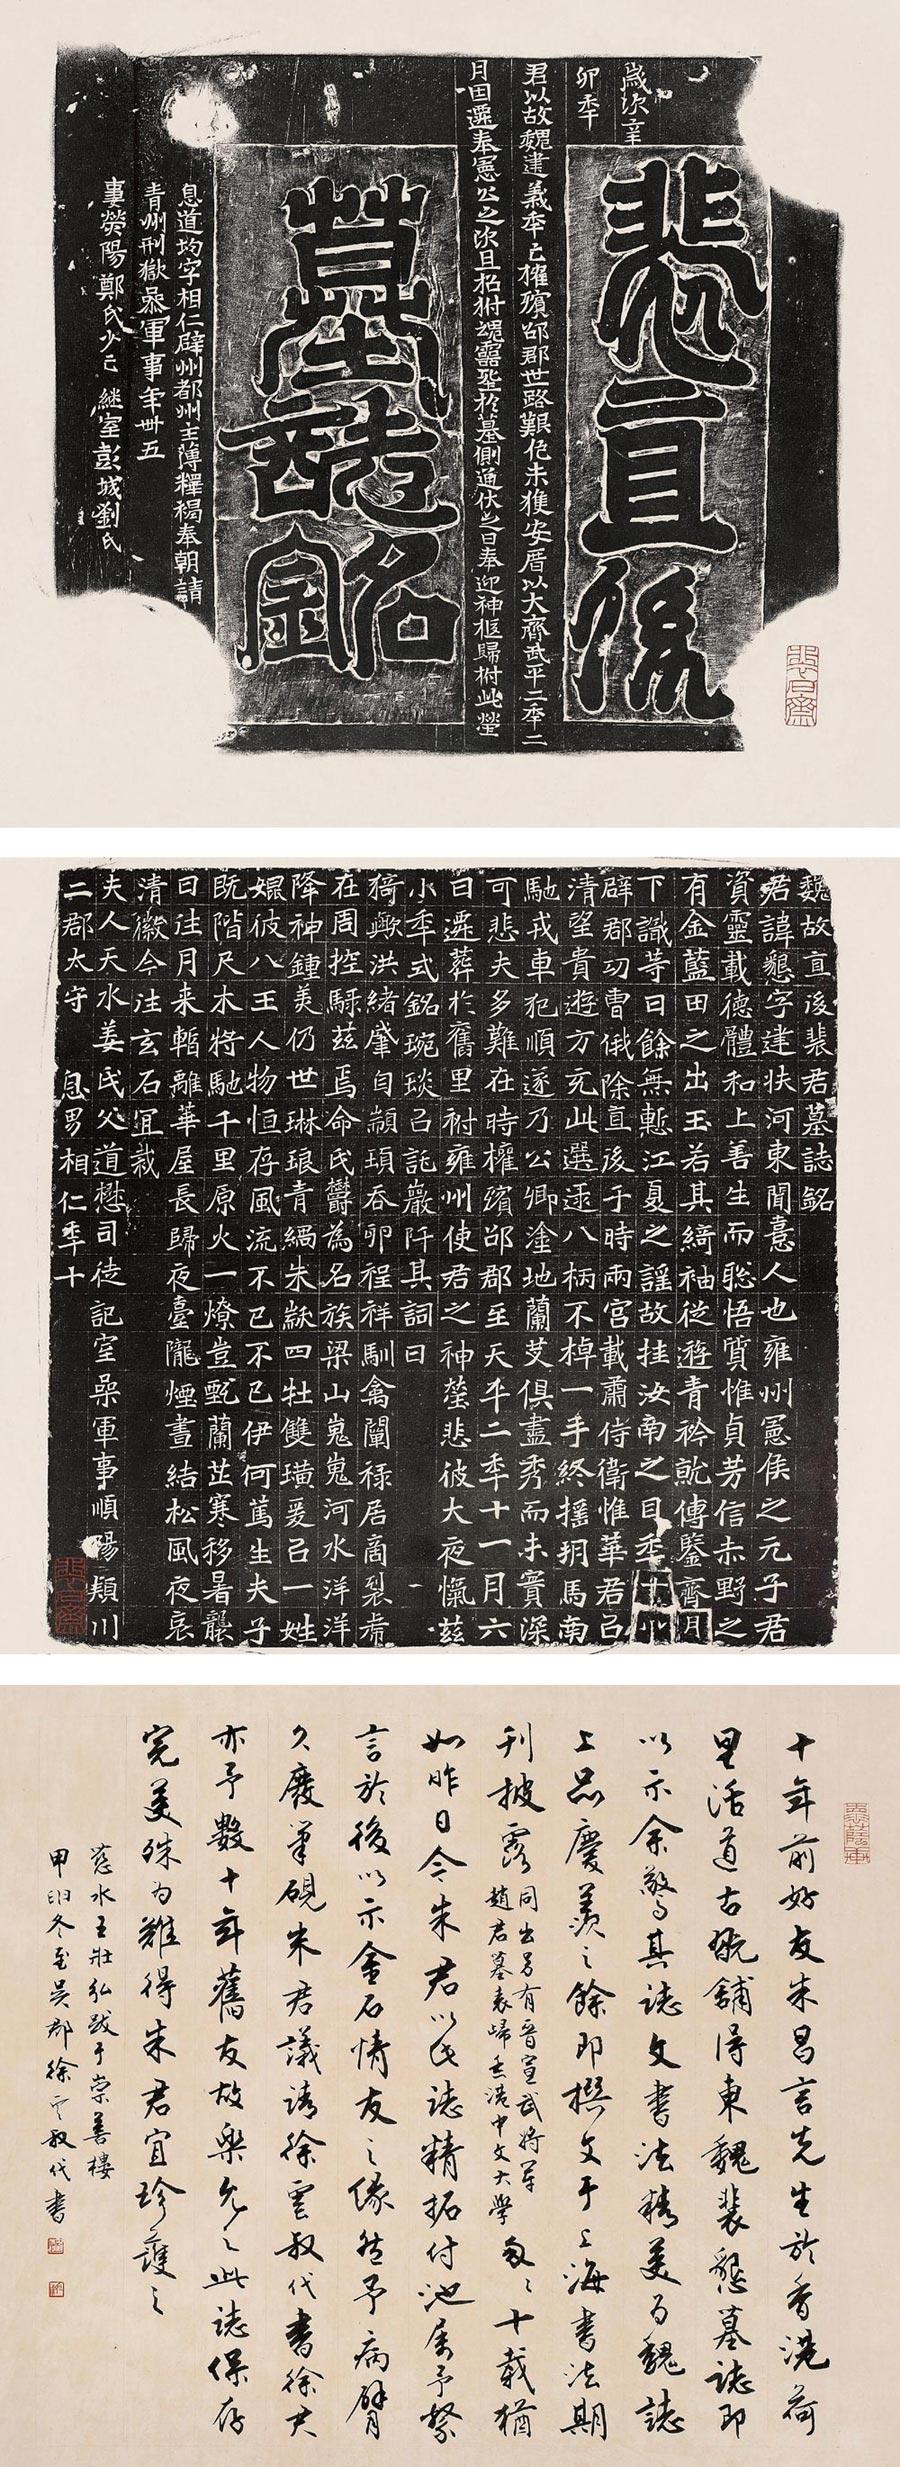 歲次辛
卯年
裴直後
君以故魏建義年已權殯邵郡世路艱危未獲安厝以大齊武平二年二
遷奉憲公之次且於墓側通伏吉日奉迎神柩歸祔此塋
墓誌銘
息道均字相仁辟州都州主薄釋褐奉朝請
青州刑獄叅軍事年卅五
妻熒陽鄭氏少亡 継室彭城劉氏
魏故直後裴君墓誌銘
君諱懇字建扶河東聞憙人也雍州憲侯之元子君
資靈載德體和上善生而聡悟質惟貞芳信赤野之
有金藍田之出玉若其綺袖從遊青衿就傅鑒齊月
下識等日餘無慙江夏之謡故挂汝南之目年十八
辟郡功曹俄除直後于時兩宮載肅侍衛惟華君㠯
清望貴遊方充此選遥八柄不棹一手終摇玥馬南
馳戎車犯順遂乃公卿塗地蘭艾俱盡秀而未實深
可悲夫多難在時權殯邵郡至天平二年十一月六
日遷葬於舊里祔雍州使君之神塋悲彼大夜愾茲
小年式銘琬琰㠯託巖阡其詞曰
猗歟洪緒肇自顓頊吞卵程祥馴禽闡祿居商裂
在周控騄茲焉命氏欝為名族梁山嵬嵬河水洋洋
降神鍾美仍世琳琅青緺朱紱四牡雙璜爰㠯一姓
媲彼八王人物恒存風流不已不已伊何篤生夫子
既階尺木將馳千里原火一燎豈甄蘭芷寒移暑襲
日往月来暫離華屋長歸夜臺隴煙晝結松風夜哀
清徽今往玄石冝裁
夫人天水姜氏父道㦤司徒記室叅軍事順陽潁川
二郡太守 息男相仁年十
十年前好友朱昌言先生於香港荷
里活道古玩舖得東魏裴懇墓誌即
以示余驚其誌文書法精美為魏誌
上品慶羨之餘即撰文于上海書法期
刊披露同出另有晉宣武將軍趙君墓表歸香港中文大學匆匆十載猶
如昨日今朱君以此誌精拓付池屬予綮
言於後以示金石情友之緣然予病臂
久廢筆硯朱君議請徐雲叔代書徐君
亦予數十年舊友故樂允之此誌保存
完美殊為難得朱君宜珍護之
慈水王壯弘跋于崇善樓
甲申冬至吳郡徐雲叔代書